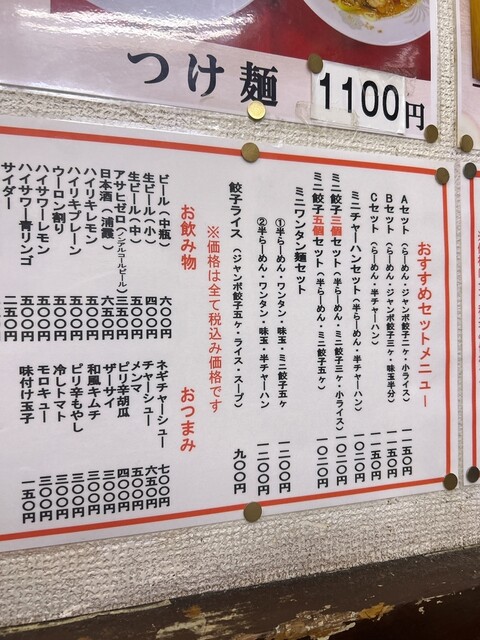 つけ麺
1100円
おすすめセットメニュー
Aセット（らーめん・ジャンボ餃子二ヶ・小ライス） 一一五〇円
Bセット（らーめん・ジャンボ餃子三ヶ・味玉半分） 一一五〇円
Cセット（らーめん・半チャーハン） 一一五〇円
ミニチャーハンセット（半らーめん・半チャーハン） 一〇二〇円
ミニ餃子三個セット（半らーめん・ミニ餃子三ヶ・小ライス） 一〇二〇円
ミニ餃子五個セット（半らーめん・ミニ餃子五ヶ） 一〇二〇円
ミニワンタン麺セット
①半らーめん・ワンタン・味玉・ミニ餃子五ヶ 一二〇〇円
②半らーめん・ワンタン・味玉・半チャーハン 一二〇〇円
餃子ライス（ジャンボ餃子五ヶ・ライス・スープ） 九〇〇円
※価格は全て税込み価格です
お飲み物
ビール（中瓶） 六〇〇円
生ビール（小） 四〇〇円
生ビール（中） 五〇〇円
アサヒゼロ（ノンアルコールビール） 三五〇円
日本酒（浦霞） 六五〇円
ハイリキレモン 五〇〇円
ハイリキプレーン 五〇〇円
ウーロン割り 五〇〇円
ハイサワーレモン 五〇〇円
ハイサワー青リンゴ 五〇〇円
サイダー 二五〇円
おつまみ
ネギチャーシュー 七〇〇円
チャーシュー 六五〇円
メンマ 五〇〇円
ピリ辛胡瓜 四〇〇円
ザーサイ 三〇〇円
和風キムチ 三〇〇円
ピリ辛もやし 三〇〇円
冷しトマト 三〇〇円
モロキュー 三〇〇円
味付け玉子 一五〇円